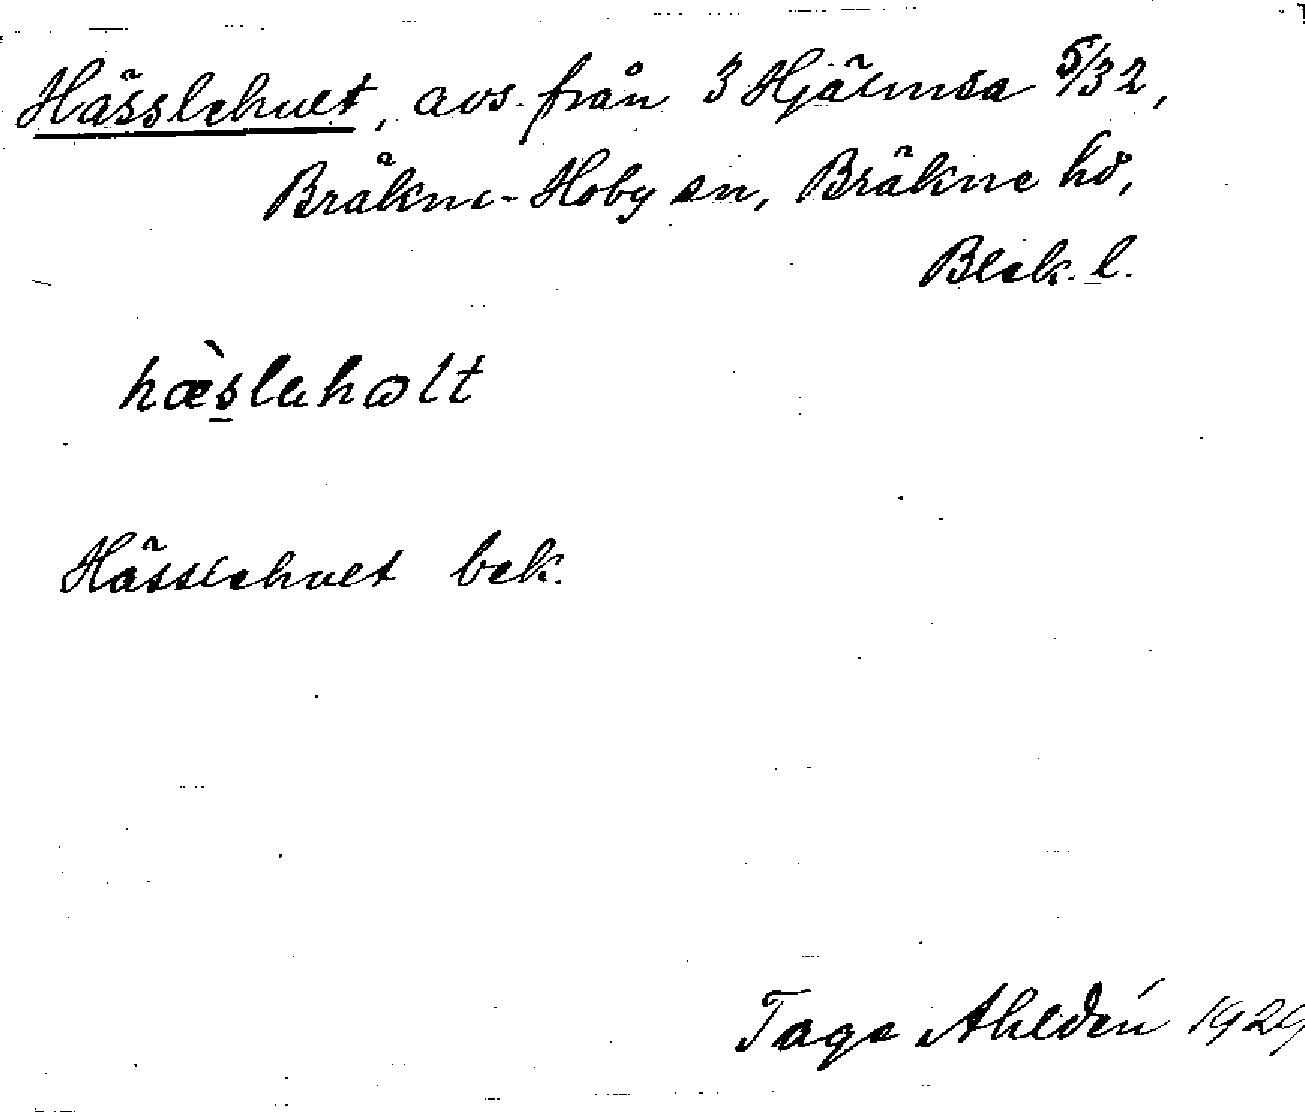 Hässlehult, avs. från 3 Hjälmsa 5/32,
Bräkne-Hoby sn, Bräkne hd,
Blek. l.
hæ̀sləhɷlt
Hässlehult bek.
Tage Ahldén 1929